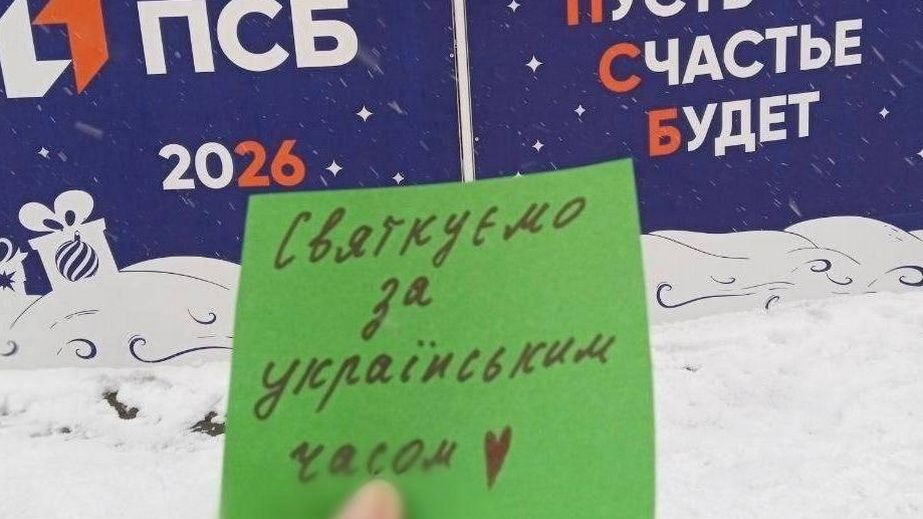 ПСБ
2026
ПУСТЬ
СЧАСТЬЕ
БУДЕТ
Святкуємо
за
українським
часом ♥